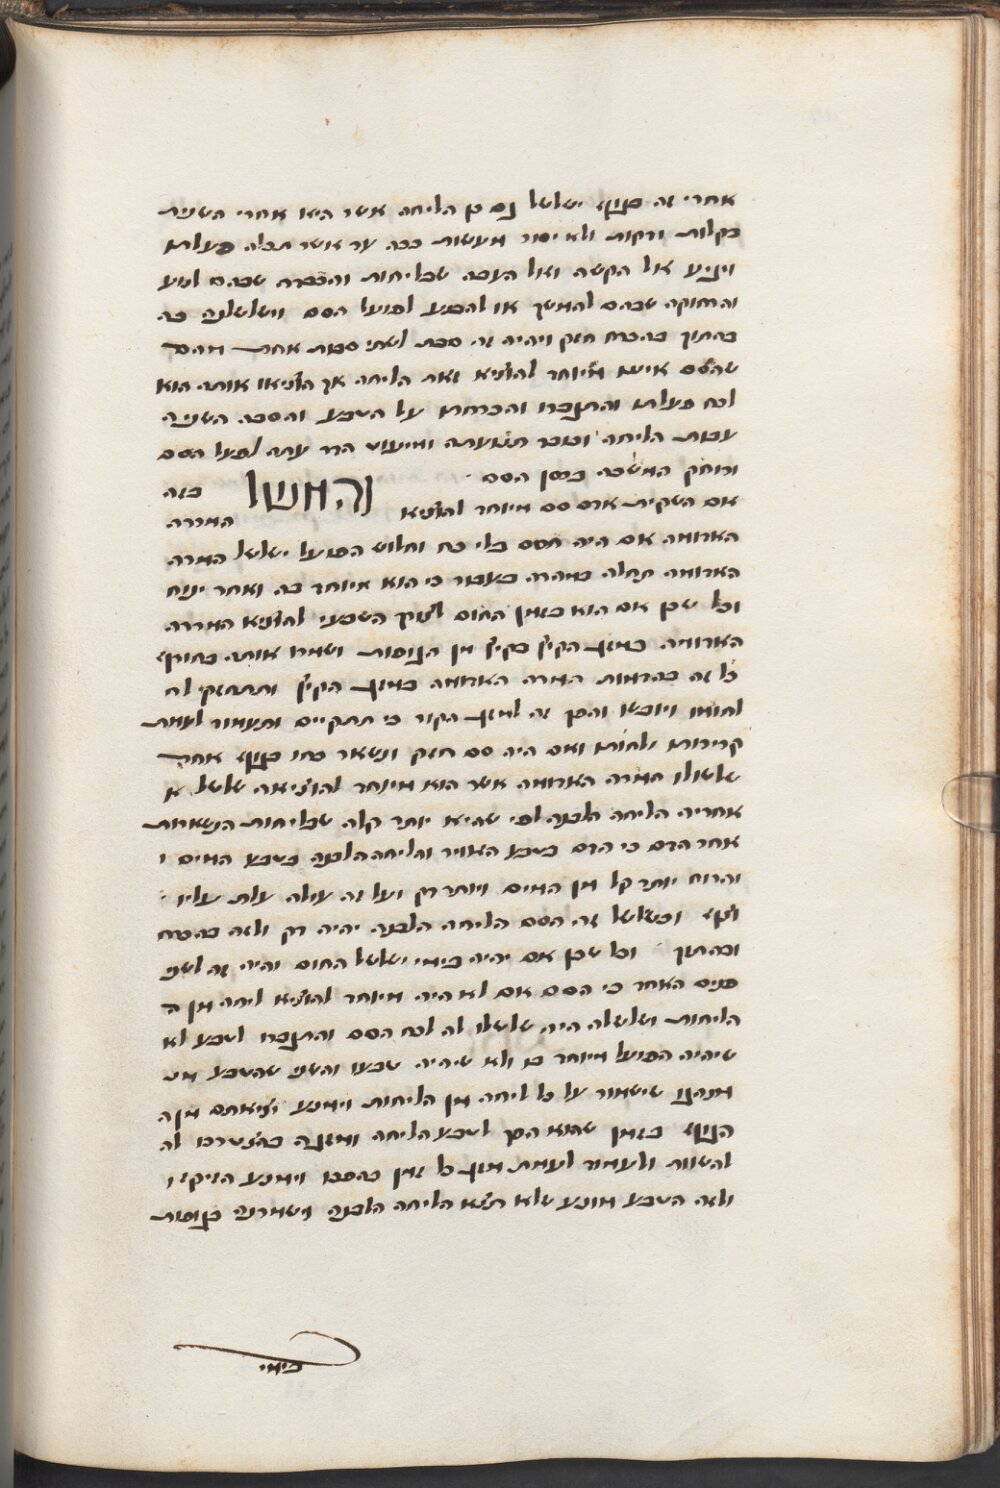 אחרי זה מגוף ישלשל גם מן הליחה אשר היא אחרי השנית
בקלות ודקות ולא יסור מעשות ככה עד אשר תכלה פעלתו
ויגיע אל הקשה ואל העבה שבליחות והכבדה שבהם לנוע
והחזקה שבהם להמשך או להכנע לפועל הסם וישלשלנה בה
כהתוך בהכרח חזק ויהיה זה סבת לשתי סבות אחת מהם
שהסם אינו מיוחד להוציא זאת הליחה אך הוציאו אותה הוא
לכח פעלתו והתגברו והכרחתו על הטבע והסבה השנית
עבות הליחה וכובד תנועתה ומיעוט הדרעתה לפועל הסם
ורוחק המשכה בזמן הסם
והמשל בזה
אם השקית אדם סם מיוחד להוציא המררה
האדומה אם היה הסם בלי כח וחלוש הפועל ישלשל המרה
האדומה תחלה במהרה בעבור כי הוא מיוחד בה ואחר ינוח
וכל שכן אם הוא בזמן החום לצורך הטבעי להוציא המררה
האדומה בזמן הקיץ בקיץ מן הגופות ושמרו אותה בחורף
כל זה בהדמות המרה האדומה בזמן הקיץ ותתחזק לח
לחומו ויובשו והפך זה לזמן הקור כי תתקיים ותעמוד לעומת
קרירותו ולחותו ואם היה סם חזק ונשאר כחו בגוף אחר
שלשולו המרה האדומה אשר הוא מיוחד להוציאה שלשל א
אחריה הליחה הלבנה לפי שהיא יותר קלה שבליחות הנשארות
אחר הדם כי הדם בטבע האויר והליחה הלבנה בטבע המים ו
והרוח יותר קל מן המים ויותר דק ועל זה עולה עלת עליו
וצף וכשלשל זה הסם הליחה הלבנה יהיה רק ולאה בהכרח
וכהתוך וכל שכן אם יהיה בימי ישלשל החום והיה זה לשני
פנים האחד כי הסם אם לא היה מיוחד להוציא ליחה מן ה
הליחות ושלשלה היה שלשולו לה לכח הסם והתגברו לטבע לא
שיהיה הפועל מיוחד בו ולא שיהיה טבעו והשני שהטבע מנ
מנהגו שישמור על כל ליחה מן הליחות וימנע יציאתם מן ה
הגוף בזמן שהוא הפך לטבע הליחה ומזגה בהצטרכו לה
להשוות ולעמוד לעומת מזג כל זמן בהפכו וימנע הזיקו ו
ולזה הטבע מונע שלא תצא הליחה הלבנה וישמרנה בגופות
בימי